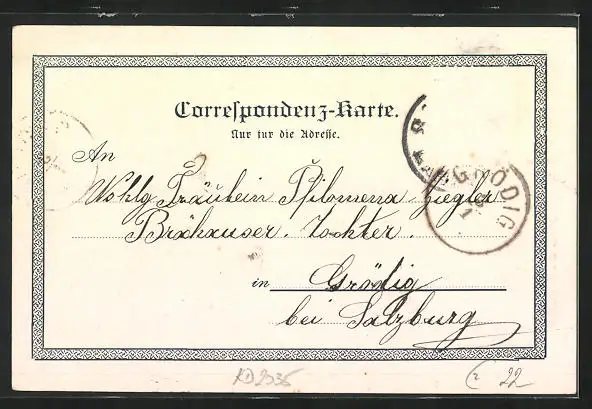 Correspondenz-Karte.
Nur für die Adresse.
An
Wohlg Fräulein Philomena Ziegler
Bräuhauser. Tochter.
in Grödig
bei Salzburg
GRÖDIG
KD2535
22